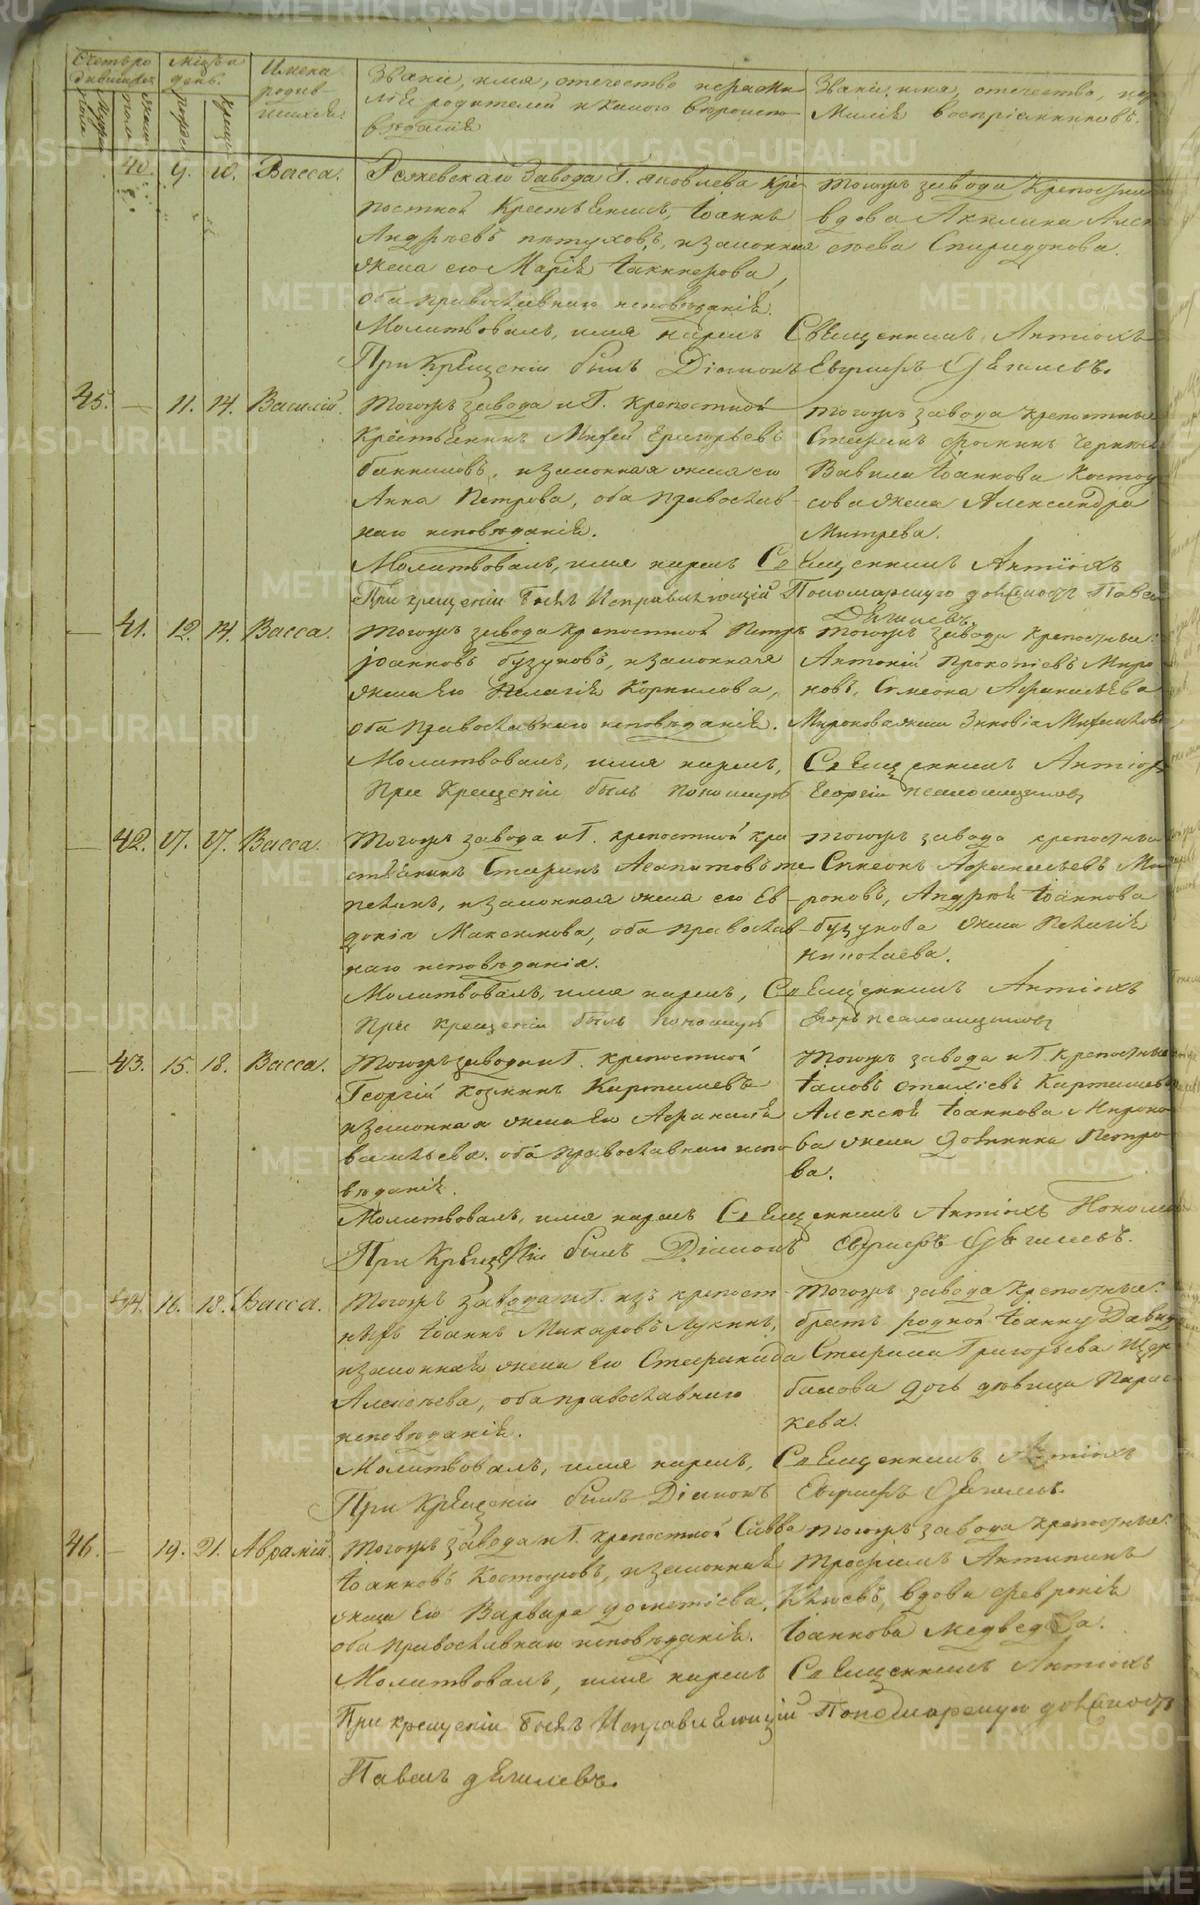 Счетъ ро
дившихся
Мужеска
пола
Женска
пола
Мѣсяцъ и
день.
рожде
креще
Имена
родив
шихся.
Званіе, имя, отечество и фами
лія родителей и какого вѣроиспо
вѣданія
Званіе, имя, отечество, и фа
милія воспріемниковъ.
40. 9. 10. Васса.
Режевскаго Завода Г. Яковлева крѣ
постной Крестьянинъ, Іоаннъ
Андреевъ Пѣтуховъ, и законная
жена его Марія
оба православнаго исповѣданія.
тогожъ завода Крепостная
вдова Акилина Алек
сѣева Спиридонова.
Молитвовалъ, имя нарекъ Священникъ Антіохъ
При Крещеніи былъ Діаконъ Евфимъ Дягилевъ.
45. — 11. 14. Василій.
Тогожъ завода и Г. крепостной
Крестьянинъ Михей Григорьевъ
и законная жена его
Анна Петрова, оба православ-
наго исповѣданія.
тогожъ завода крепостные
Стефанъ Фокинъ
Вавила Іоаннова Костоу
сова жена Александра
Митрева.
Молитвовалъ, имя нарекъ Священникъ Антіохъ
При крещеніи былъ Исправляющій Пономарскую должность Павелъ
Дягилевъ.
— 41. 12. 14. Васса.
Тогожъ завода крепостной Петръ
Іоанновъ Бузуновъ, и законная
жена его Пелагія Корнилова,
оба православнаго исповѣданія.
тогожъ завода крепостные:
Антоній Прокопіевъ Миро
новъ, Симеона Афанасьева
Миронова жена Зиновіа
Молитвовалъ, имя нарекъ, Священникъ Антіохъ
При Крещеніи былъ пономарь Георгій Псаломщиковъ
— 42. 17. 17. Васса.
Тогожъ завода и Г. крепостной кре
стьянинъ Стефанъ Агапитовъ
и законная жена его Ев-
докія Максимова, оба православ-
наго исповѣданія.
тогожъ завода крепостные
Симеонъ Афанасьевъ Ми
роновъ, Андрея Іоаннова
Бузунова жена Пелагія
Николаева.
Молитвовалъ, имя нарекъ, Священникъ Антіохъ
При крещеніи былъ пономарь Егоръ Псаломщиковъ
— 43. 15. 18. Васса.
Тогожъ завода и Г. крепостной
Георгій Козминъ Карташевъ
и законная жена его Афанасія
Васильева. оба православнаго испо-
вѣданія.
Тогожъ завода и Г. крепостные
Іаковъ Карташевъ
Алексѣя Іоаннова Мироно
ва жена Домника Петро
ва.
Молитвовалъ, имя нарекъ Священникъ Антіохъ
При Крещеніи былъ Діаконъ Евфимъ Дягилевъ.
44. 16. 18. Васса.
Тогожъ завода и Г. изъ крепост-
ныхъ Іоаннъ Макаровъ Лукинъ,
и законная жена его Стефанида
Алексѣева, оба православнаго
исповѣданія.
Тогожъ завода крепостные:
братъ родной Іоанну Давидъ
Стефана Григорьева Щер
бакова дочь дѣвица Парас
кева.
Молитвовалъ, имя нарекъ, Священникъ Антіохъ
При Крещеніи былъ Діаконъ Евфимъ Дягилевъ.
46. — 19. 21. Аврамій.
Тогожъ завода и Г. крепостной Савва
Іоанновъ Костоусовъ, и законная
жена его Варвара Дометіева,
оба православнаго исповѣданія.
тогожъ завода крепостные:
Трофимъ Антипинъ
вдова Февронія
Іоаннова Медведева.
Молитвовалъ, имя нарекъ Священникъ Антіохъ
При крещеніи былъ Исправляющій Пономарскую должность
Павелъ Дягилевъ.
METRIKI.GASO-URAL.RU